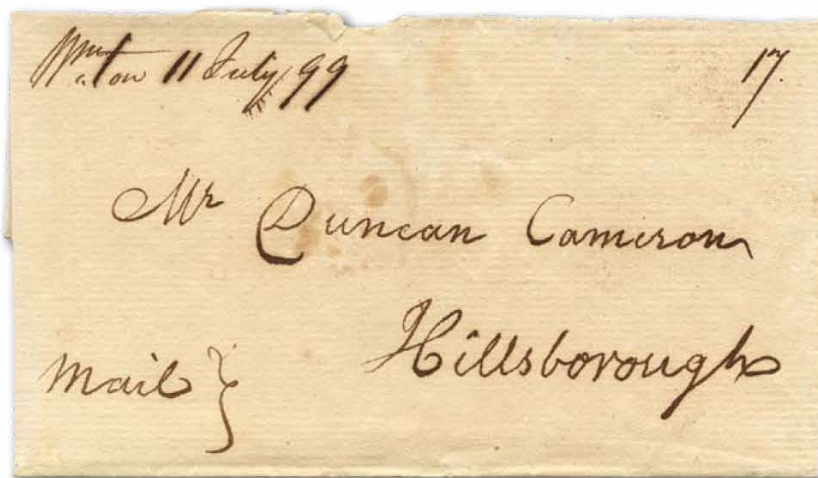 Wm.ton 11 July 99 17.
Mr Duncan Cameron
Hillsborough
Mail